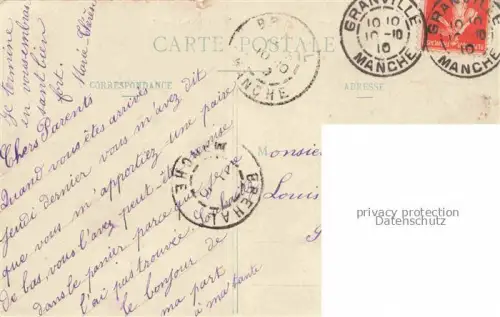 CARTE POSTALE
CORRESPONDANCE
ADRESSE
GRANVILLE
10 10
10-10
10
MANCHE
GRANVILLE
10 10
10-10
10
MANCHE
BREHAL
MANCHE
Chers Parents
Quand vous êtes arrivés
jeudi dernier vous m'avez dit
que vous m'apportiez une paire
de bas, vous l'avez peut-être
dans le panier parce que
l'ai pas trouvée.
le bonjour de
ma part
à ma tante
Je termine
en vous embras
sant bien
fort.
Marie
Monsie
Louis
privacy protection
Datenschutz